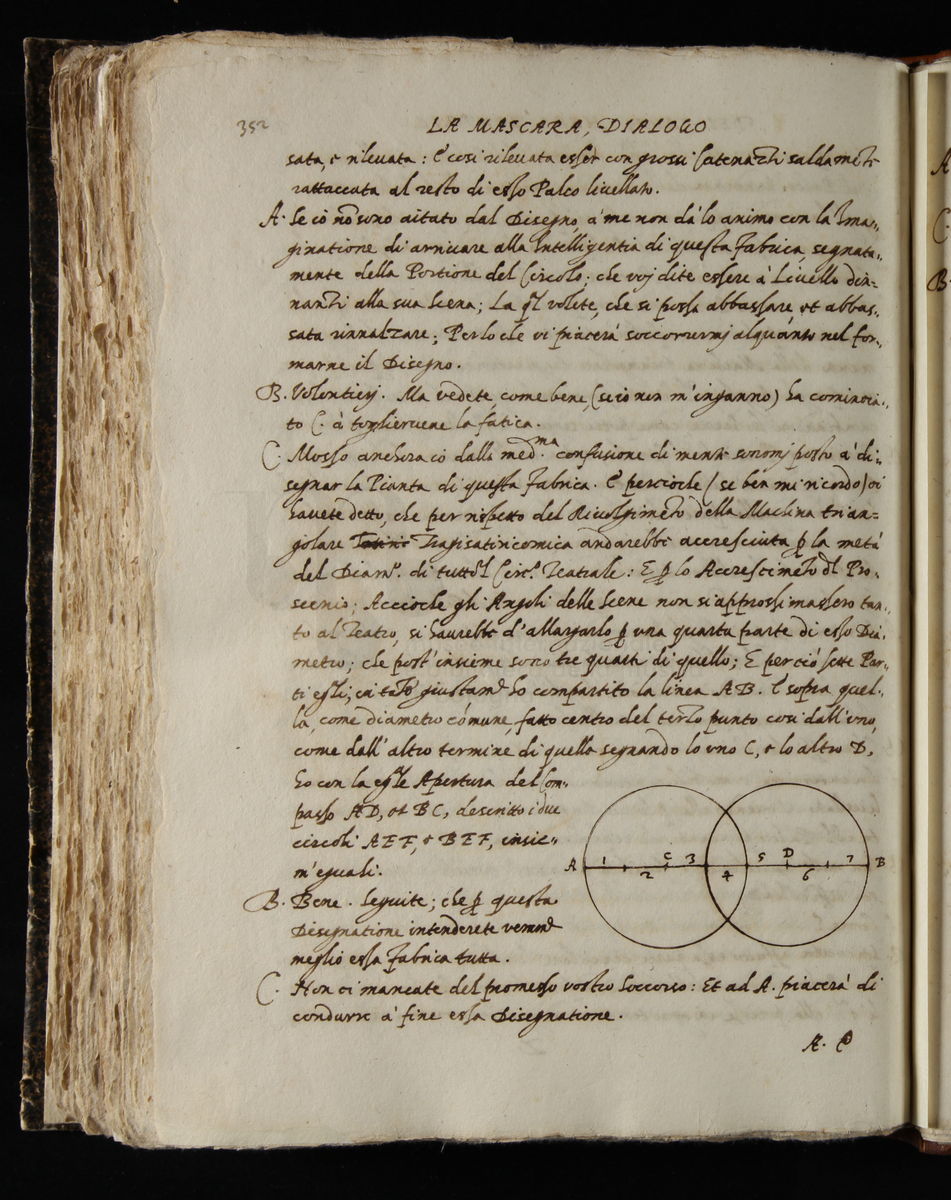 352
LA MASCARA, DIALOGO
sata, e rilevata: E così rilevata esser con grossi Catenazzi saldamẽte
rattaccata al resto di esso Palco livellato.
A. Se io nõ sono aitato dal Disegno, à me non dà lo animo con la Ima„
ginatione di arrivare alla Intelligentia di questa Fabrica, segnata„
mente della Portione del Circolo, che voj dite essere à Livello din=
nanzi alla sua Scena; La q̃l volete, che si possa abbassare, et abbas„
sata rinnalzare; Per lo che vi piacerà soccorrermj alquanto nel for„
marne il Disegno.
B. Volontierj. Ma vedete, come bene, (se io non m'inganno) ha comincia„
to C. à togliervene la fatica.
C. Mosso anchora io dalla med.ma confusione di mente sonomj posto à di„
segnar la Pianta di questa Fabrica. E percioche (se ben mi ricordo) ci
havete detto, che per rispetto del Rivolgimẽto della Machina trian=
golare Tragisatiricomica andarebbe accresciuta p la metà
del Diam.º di tutto'l Circ.º Teatrale: E p lo Accrescimẽto dl Pro„
scenio; Accioche gli Angoli delle Scene non si approssimassero tan„
to al Teatro, si havrebbe d'allargarlo p una quarta parte di esso Dia
metro; che post'insieme sono tre quarti di quello; E perciò sette Par„
ti eg̃li; in tãto giustam.te ho compartito la linea AB. E sopra quel„
la, come diametro cómune, fatto centro del terzo punto così dall'uno,
come dall'altro termine di quella segnando lo uno C, e lo altro D,
ho con la eg̃le Apertura del Com„
passo AD, et BC, descritto i due
circoli AEF, e BEF, insie„
m'eguali.
A 1 2 C 3 4 5 D 6 7 B
B. Bene. Seguite; che p questa
Disegnatione intenderete veram.te
meglio essa Fabrica tutta.
C. Non ci mancate del promesso vostro soccorso: Et ad A. piacerà di
condurre à fine essa Disegnatione.
A. E